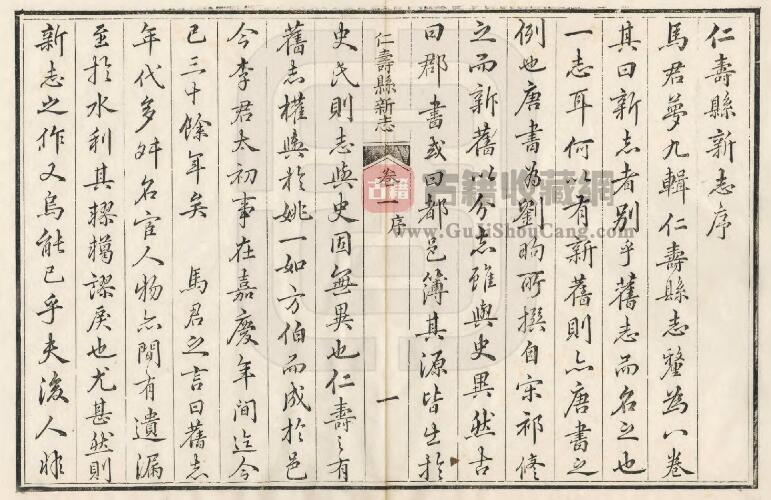 仁壽縣新志序
馬君夢九輯仁壽縣志釐為八卷
其曰新志者別乎舊志而名之也
一志耳何以有新舊則亦唐書之
例也唐書為劉昫所撰自宋祁修
之而新舊以分志雖與史異然古
曰郡書或曰都邑簿其源皆出於
仁壽縣新志
卷一序
一
史氏則志與史固無異也仁壽之有
舊志權輿於姚一如方伯而成於邑
令李君太初事在嘉慶年間迄今
已三十餘年矣 馬君之言曰舊志
年代多舛名宦人物亦間有遺漏
至於水利其轇轕謬戾也尤甚然則
新志之作又烏能已乎夫後人排
古籍
古籍收藏網
www.GuJiShouCang.com